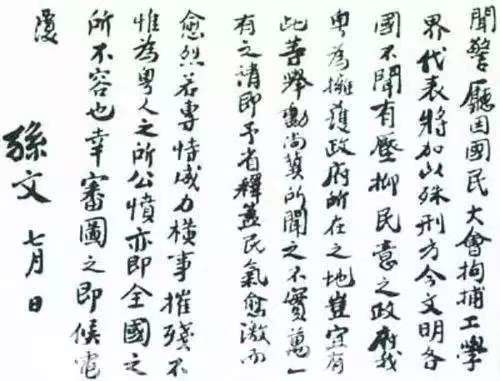 聞警廳因國民大會拘捕工學
界代表將加以殊刑方今文明各
國不聞有壓抑民意之政府我
粤為擁護政府所在之地豈宜有
此等舉動尚冀所聞之不實萬一
有之請即予省釋蓋民氣愈激而
愈烈若專恃威力橫事摧殘不
惟為粤人之所公憤亦即全國之
所不容也幸審圖之即候電
覆
孫文 七月 日